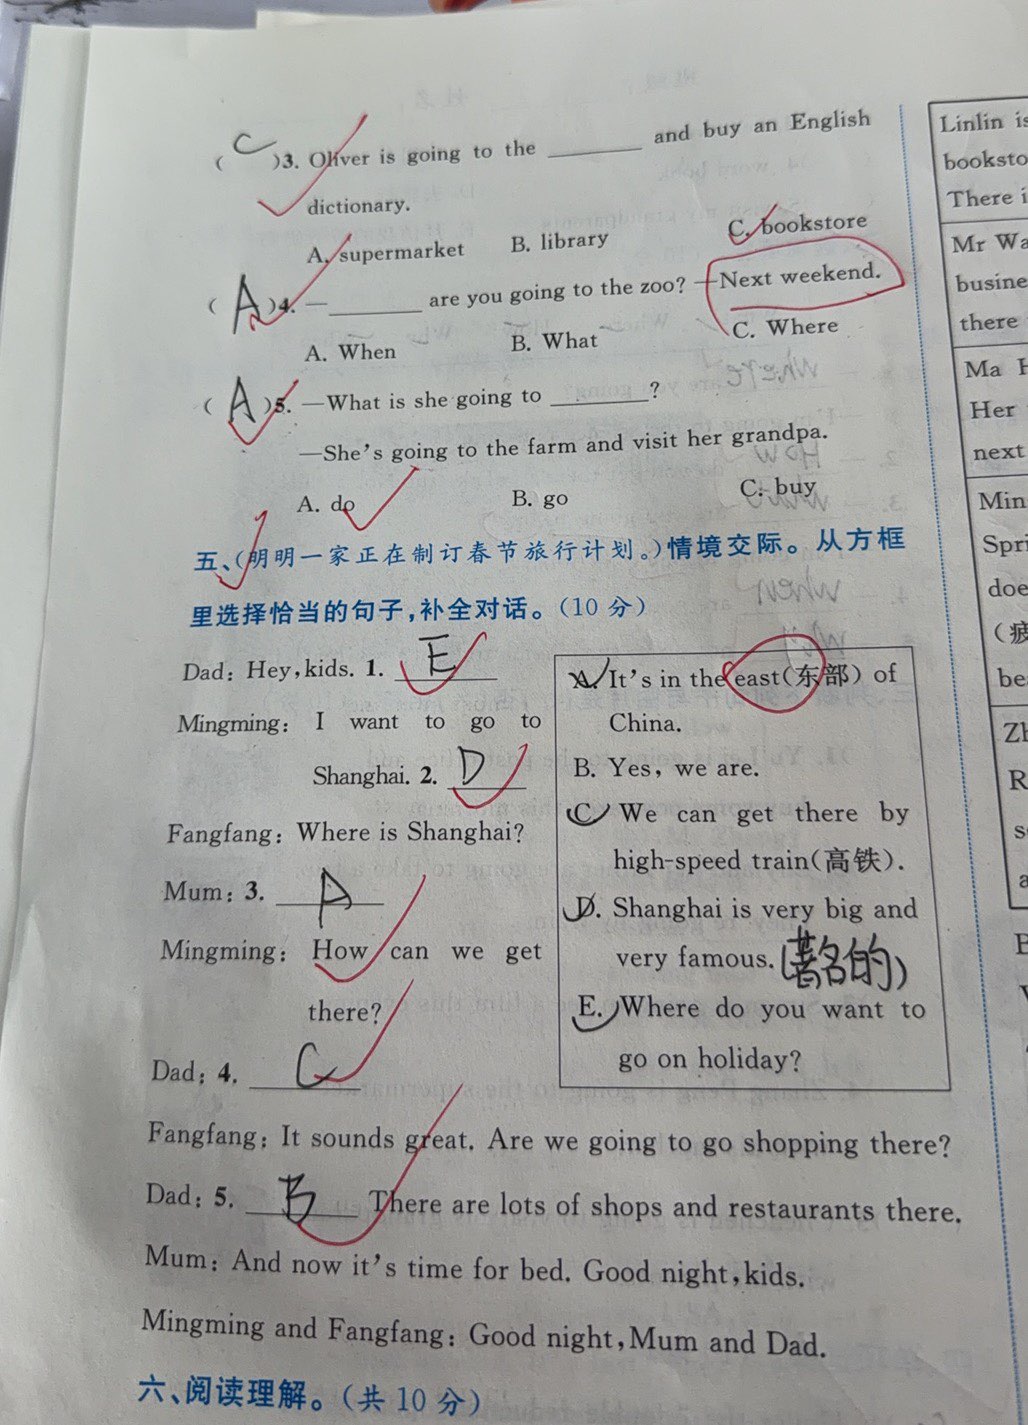 ( C )3. Oliver is going to the ________ and buy an English
dictionary.
A. supermarket B. library C. bookstore
( A )4. —________ are you going to the zoo? —Next weekend.
A. When B. What C. Where
( A )5. —What is she going to ________?
—She's going to the farm and visit her grandpa.
A. do B. go C. buy
五、(明明一家正在制订春节旅行计划。)情境交际。从方框
里选择恰当的句子,补全对话。(10 分)
Dad: Hey,kids. 1. E
Mingming: I want to go to
Shanghai. 2. D
Fangfang: Where is Shanghai?
Mum: 3. A
Mingming: How can we get
there?
Dad: 4. C
A. It's in the east(东部) of
China.
B. Yes, we are.
C. We can get there by
high-speed train(高铁).
D. Shanghai is very big and
very famous.(著名的)
E. Where do you want to
go on holiday?
Fangfang: It sounds great. Are we going to go shopping there?
Dad: 5. B There are lots of shops and restaurants there.
Mum: And now it's time for bed. Good night,kids.
Mingming and Fangfang: Good night,Mum and Dad.
六、阅读理解。(共 10 分)
Linlin is
booksto
There i
Mr Wa
busine
there
Ma
Her
next
Min
Spri
doe
(疲
be